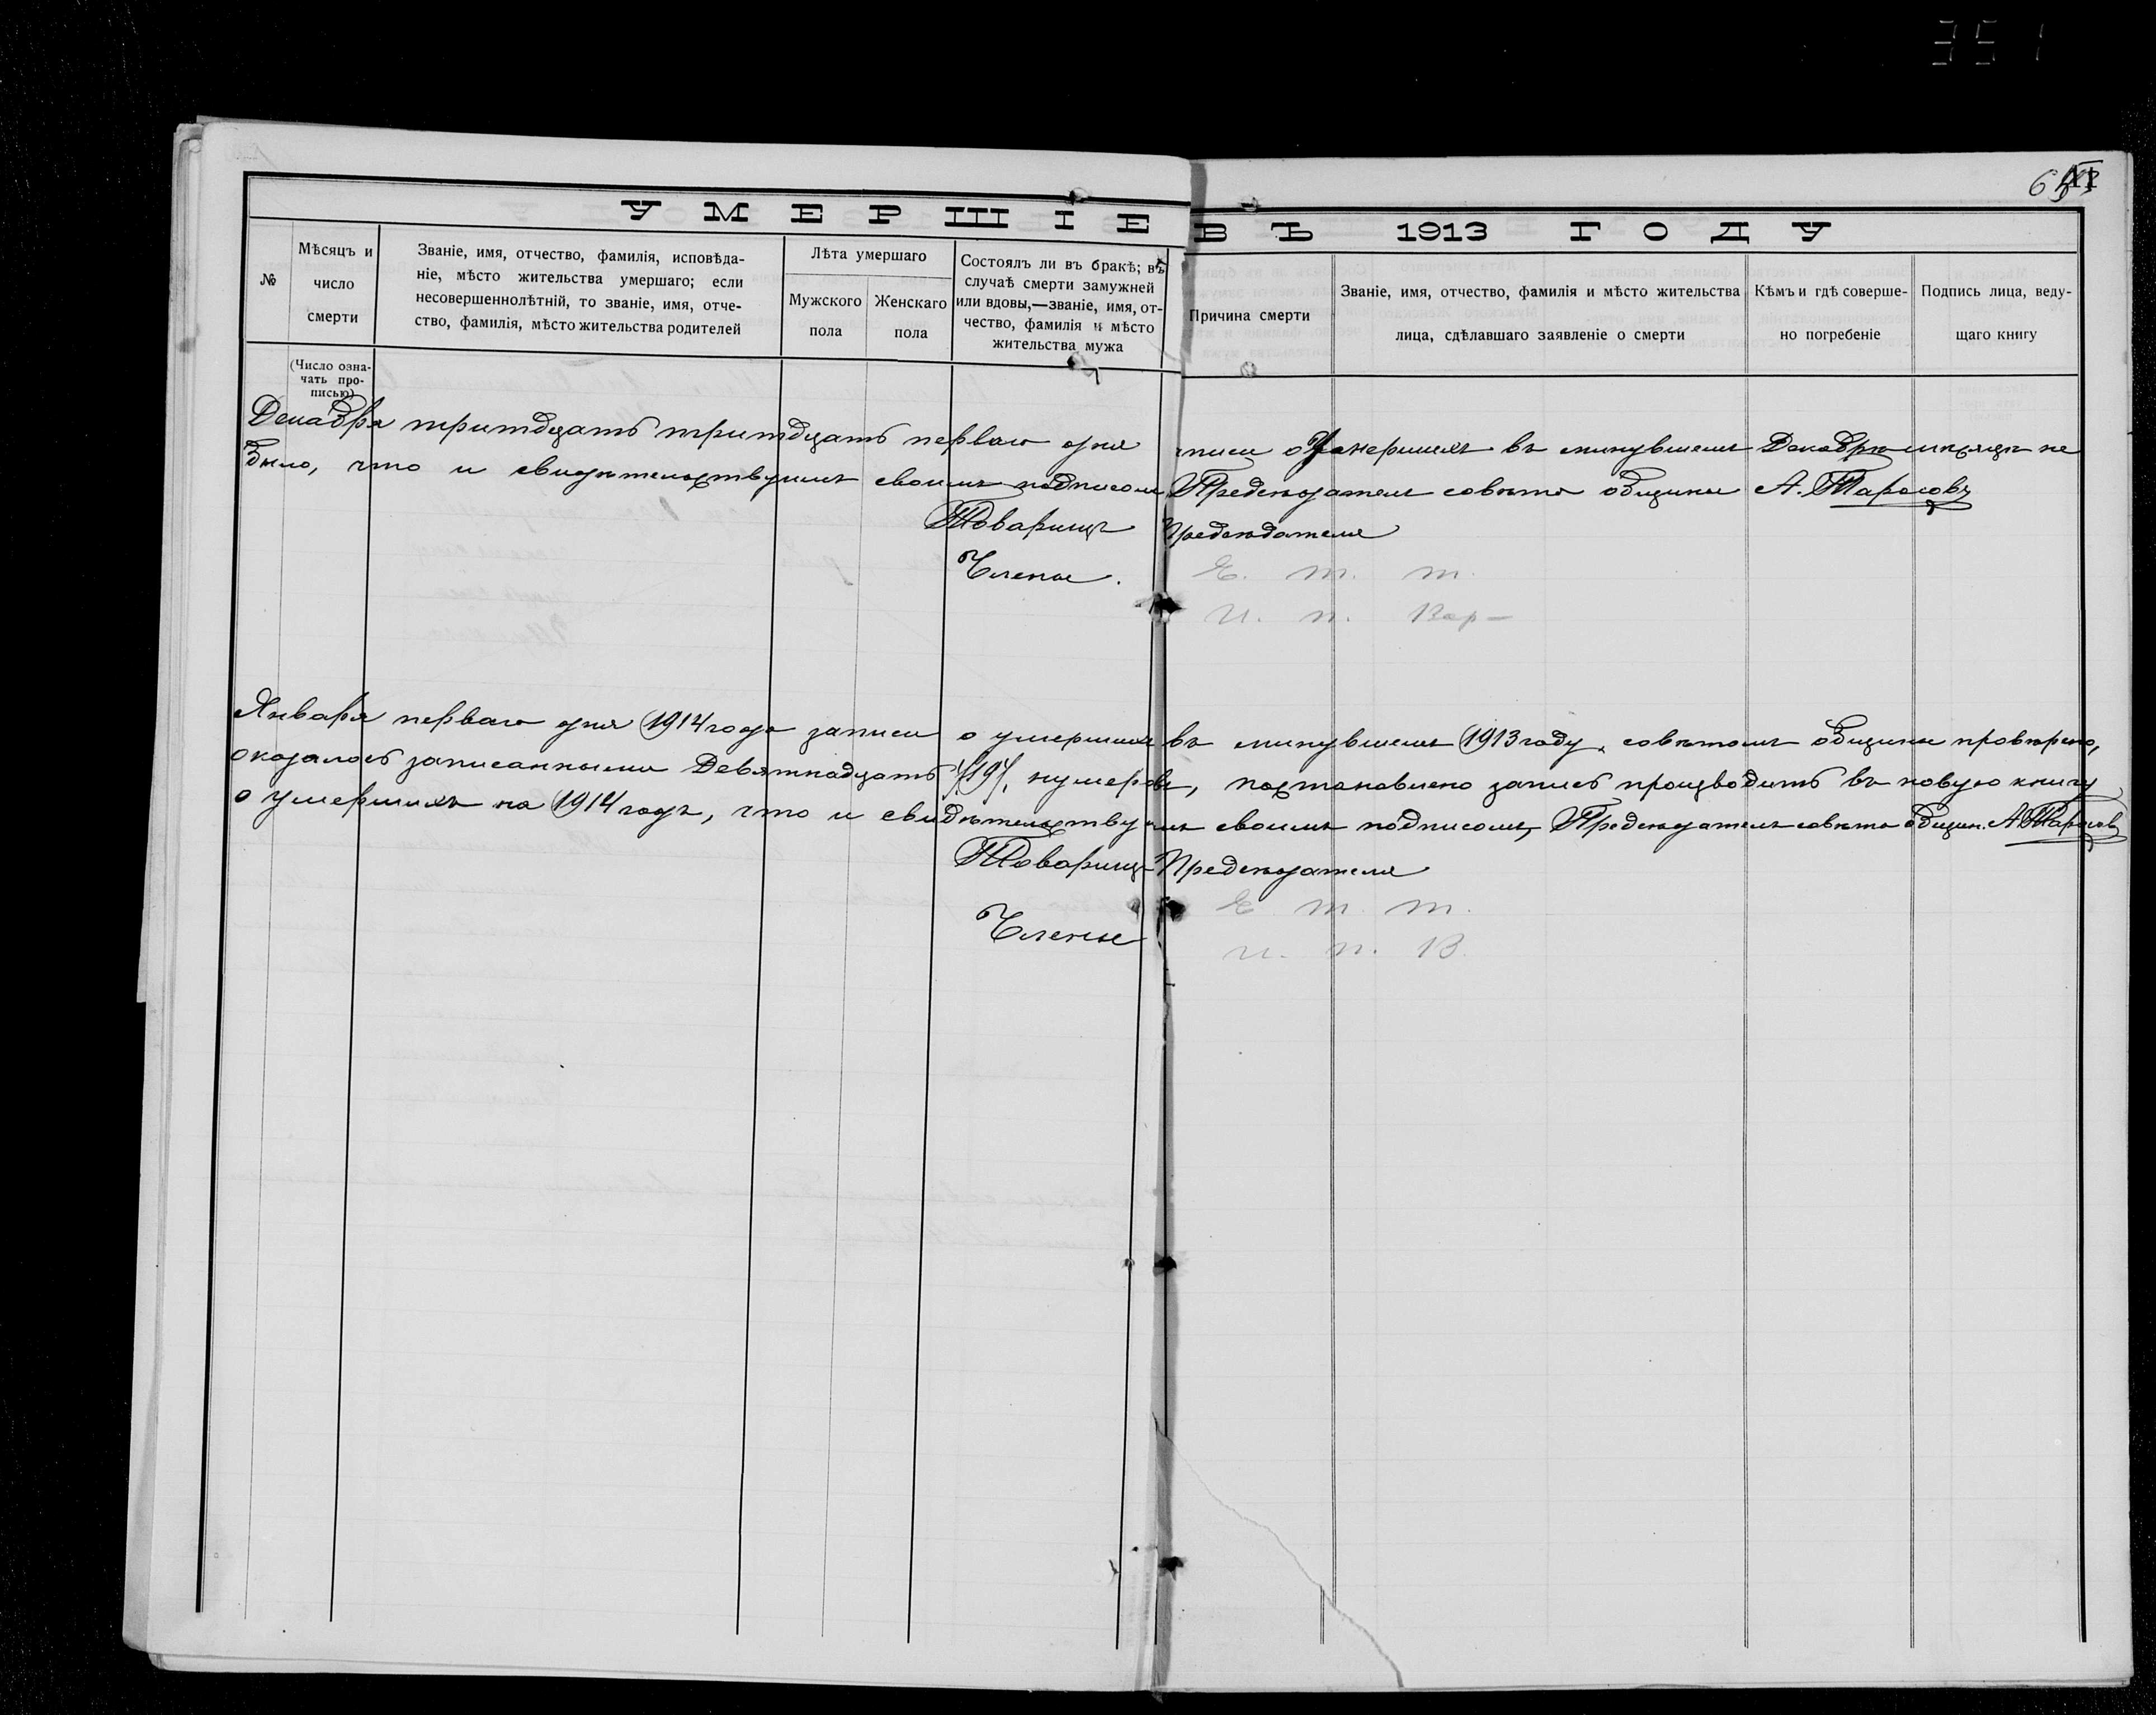 351
XI
УМЕРШІЕ ВЪ 1913 ГОДУ
№
Мѣсяцъ и
число
смерти
Званіе, имя, отчество, фамилія, исповѣда-
ніе, мѣсто жительства умершаго; если
несовершеннолѣтній, то званіе, имя, отче-
ство, фамилія, мѣсто жительства родителей
Лѣта умершаго
Мужского
пола
Женскаго
пола
Состоялъ ли въ бракѣ; въ
случаѣ смерти замужней
или вдовы,—званіе, имя, от-
чество, фамилія и мѣсто
жительства мужа
Причина смерти
Званіе, имя, отчество, фамилія и мѣсто жительства
лица, сдѣлавшаго заявленіе о смерти
Кѣмъ и гдѣ соверше-
но погребеніе
Подпись лица, веду-
щаго книгу
(Число озна-
чать про-
писью)
Декабря тритдцать перваго дня записи о Умершихъ въ минувшемъ Декабрѣ мѣсяцѣ не
было, что и свидѣтельствуимъ своимъ подписомъ Предсѣдатель совѣта общины А. Тарасовъ
Товарищъ Предсѣдателя
Члены.
Е. т. т.
и. п. Вар–
Января перваго дня 1914 года записи о умершихъ въ минувшемъ 1913 году, совѣтомъ общины провѣрено,
оказалось записанными Девятнадцать /19/, нумеровъ, постановлено запись производить въ новую книгу
о умершихъ на 1914 годъ, что и свидѣтельствуимъ своимъ подписомъ, Предсѣдатель совѣта общин. А. Тарасовъ
Товарищъ Предсѣдателя
Члены
Е т. т.
и. п. В.